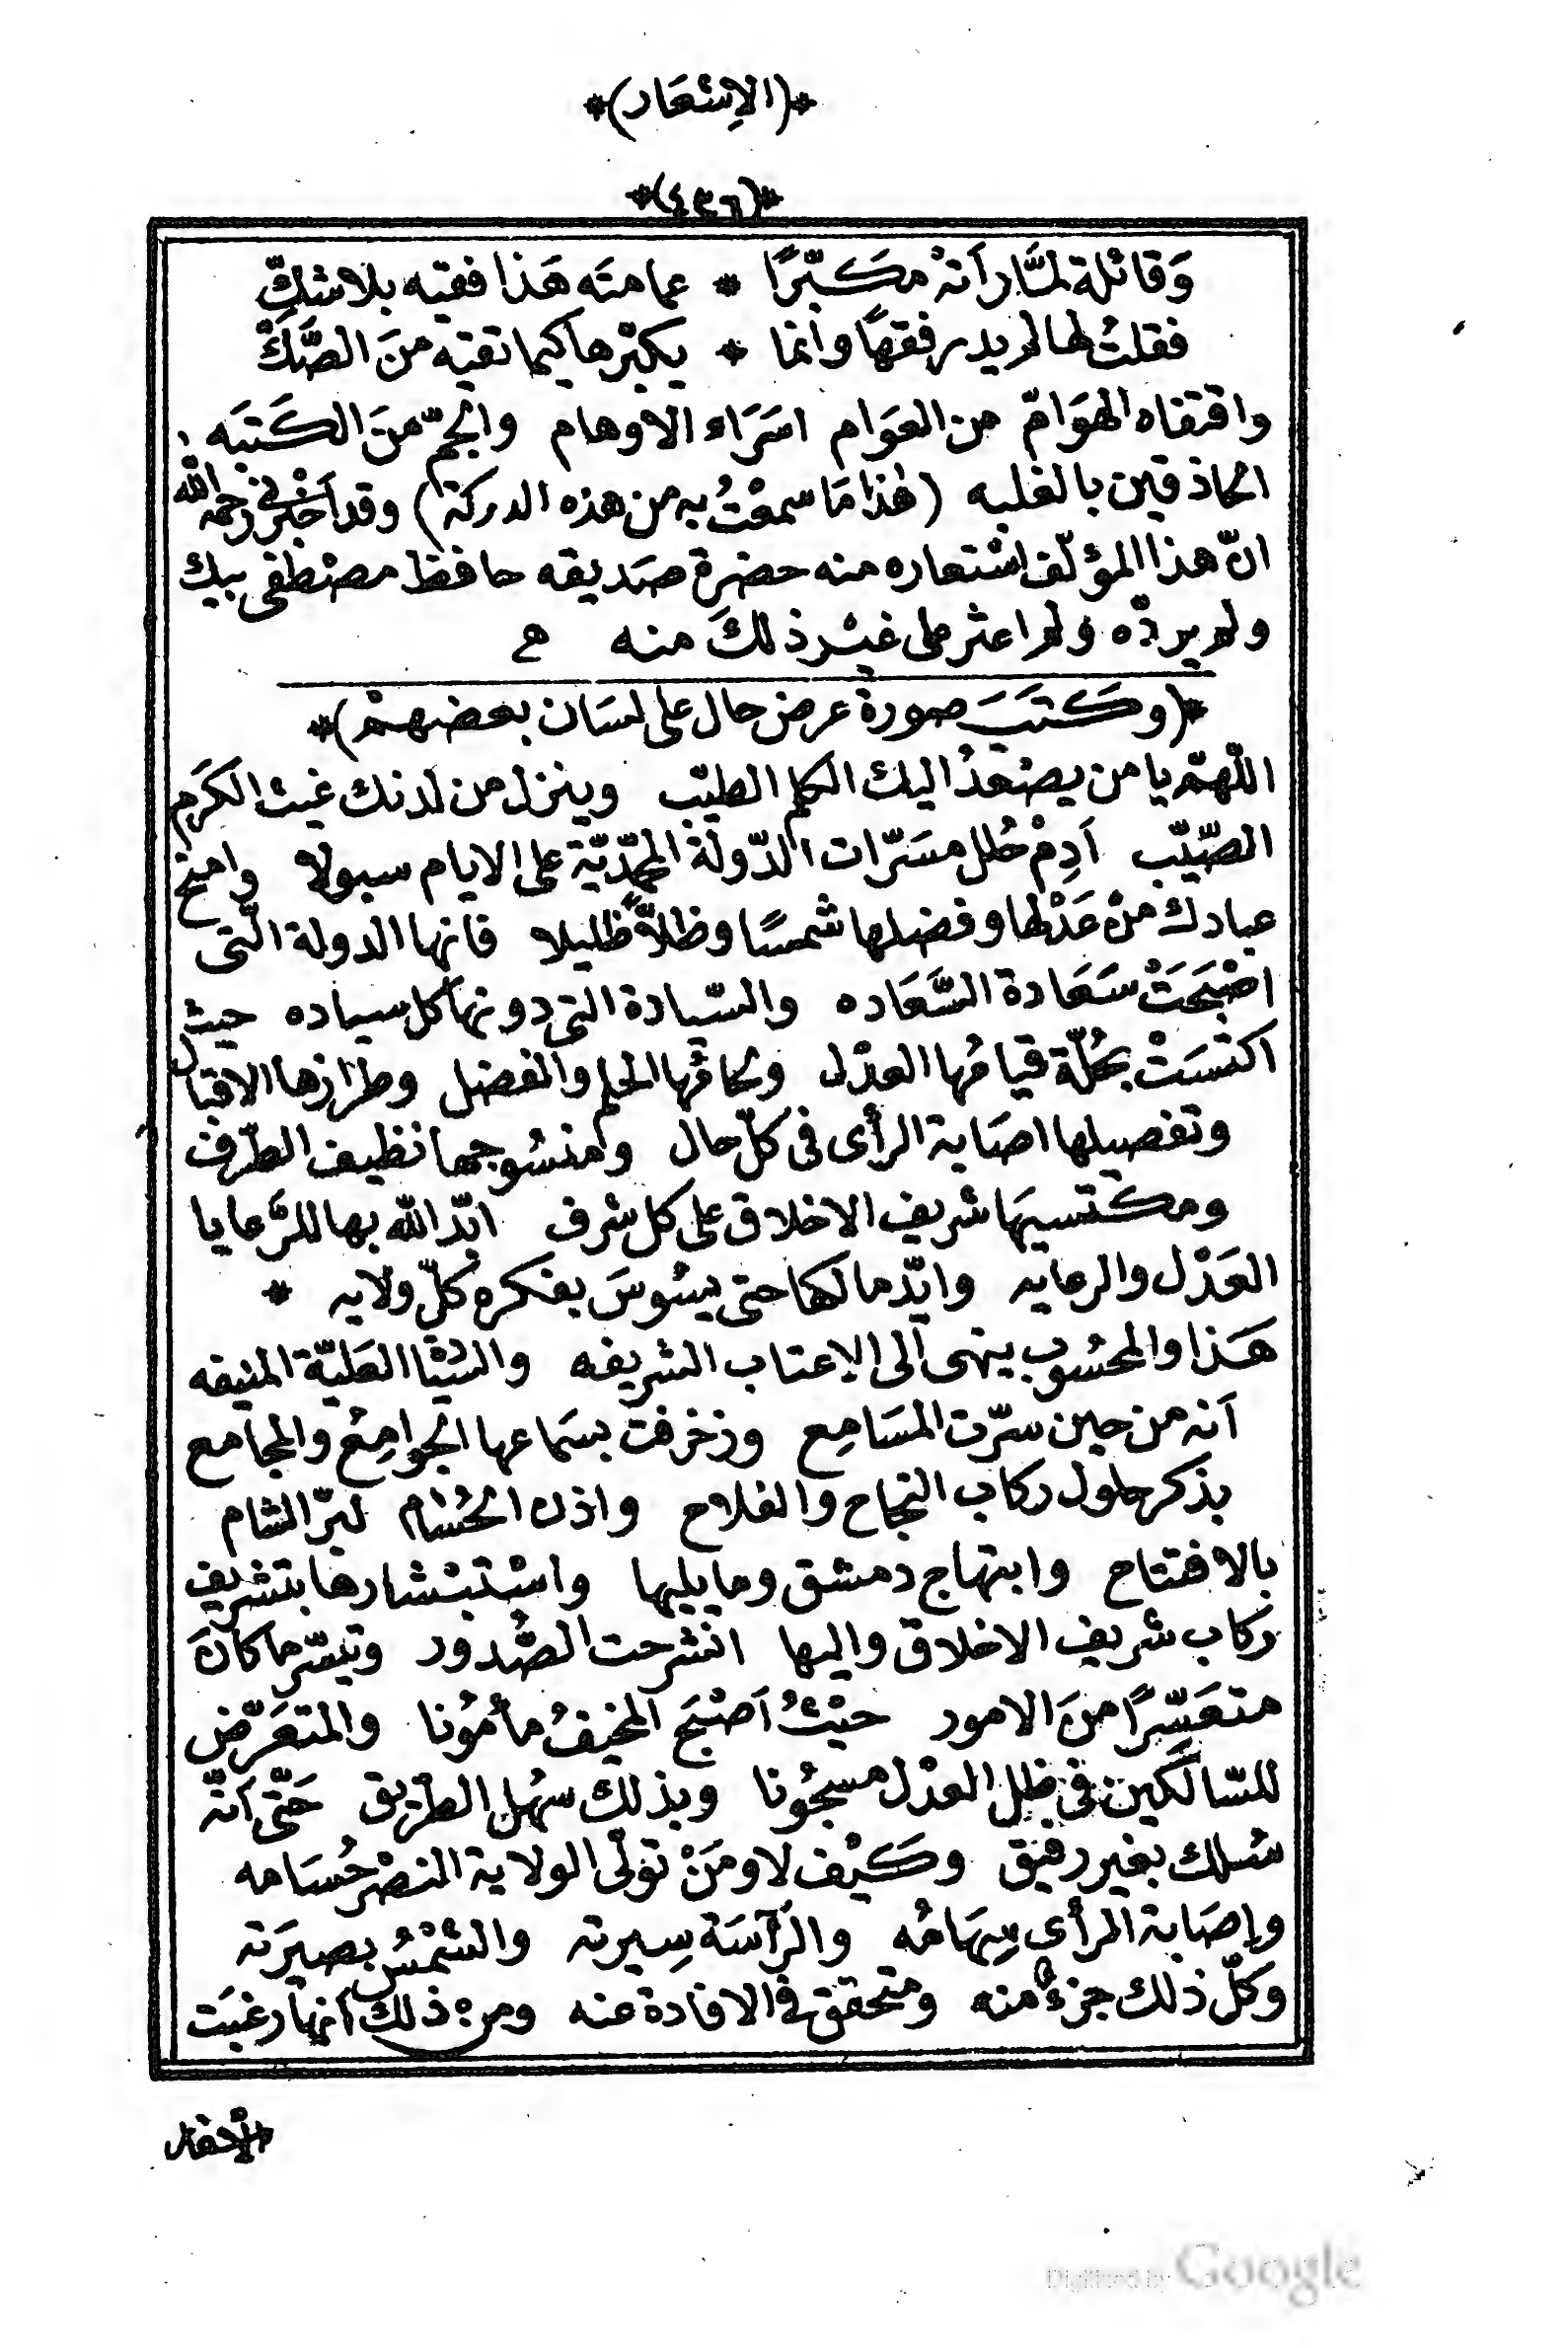 *(الاِسْعَاد)*
*(٤٣٦)*
وَقائلة لمَّا رأتهُ مكَبّرًا * عمامتَه هَذا فقيه بلا شكِّ
فقلتُ لها لم يدر فقهًا وانما * يكبّرها كيما تقيه منَ الصَّكّْ
واقتفاه الهَوَامّ من العَوَام اسَرَاء الاوهام والجمّ منَ الكَتبَه
الحاذقين بالغلبه (هٰذا مَا سمعْتُ به من هذه الدركة) وقد اَخبَرني رحمه الله
انّ هذا المؤلّف اسْتعاره منه حضرة صَديقه حافظ مصْطفى بيك
ولم يردّه ولم اعثر على غيْر ذلكَ منه ه
*(وكَتبَ صورة عرض حال على لسَان بعضهمْ)*
اللّهمّ يا من يصْعَدُ اليك الكلم الطيّب وينزل من لدنك غيث الكرَم
الصّيّب اَدِمْ حُلل مسَرّات الدّولة المحمّديّة على الايام سبولا وامنح
عبادك منْ عَدْلها وفضلها شمسًا وظلاًّ ظليلا فانها الدولة الّتى
اصْبَحَتْ سَعَادة السَّعَاده والسّيادة التى دونها كل سياده حيث
اكتسَتْ بحُلّة قيامُها العدْل ولحافُها الحلم والفضل وطرازها الاقبال
وتفصيلها اصَابة الرأى فى كلّ حال ومنسُوجها نظيف الطّرف
ومكتسيهَا شريف الاخلاق على كل شرف ابّد الله بها للرَّعايا
العَدْل والرعايه وايّد مالكها حتى يسُوسَ بفكره كلّ ولايه *
هَذا والمحسُوب ينهى الى الاعتاب الشريفه والسُّدّة العَليّة المنيفه
اَنه من حين سرّت المسَامِع وزخرفت بسَماعها الجوامِعُ والمجامع
بذكر حلول ركاب النجاح والفلاح واذن الحُسَام لبرّ الشام
بالافتتاح وابتهاج دمشق وما يليها واسْتبْشارها بتشريف
ركاب شريف الاخلاق واليها انشرحت الصُّدور وتيسّر ما كانَ
متعَسِّرًا منَ الامور حيْثُ اَصْبَح المخيفُ مأمُونا والمتعَرّض
للسّالكين فى ظل العدْل مسجُونا وبذلك سهُل الطّريق حَتّى اَنّه
سُلك بغير رفيق وكَيْف لا ومَنْ تولّى الولاية النصْر حُسَامه
وإصَابة الرأى سِهَامُه والرَّآسَة سِيرته والشّمْسُ بصيرَته
وكلّ ذلك جزءٌ منه ومتحقق فى الافادة عنه ومن ذلك اَنها رغبَت